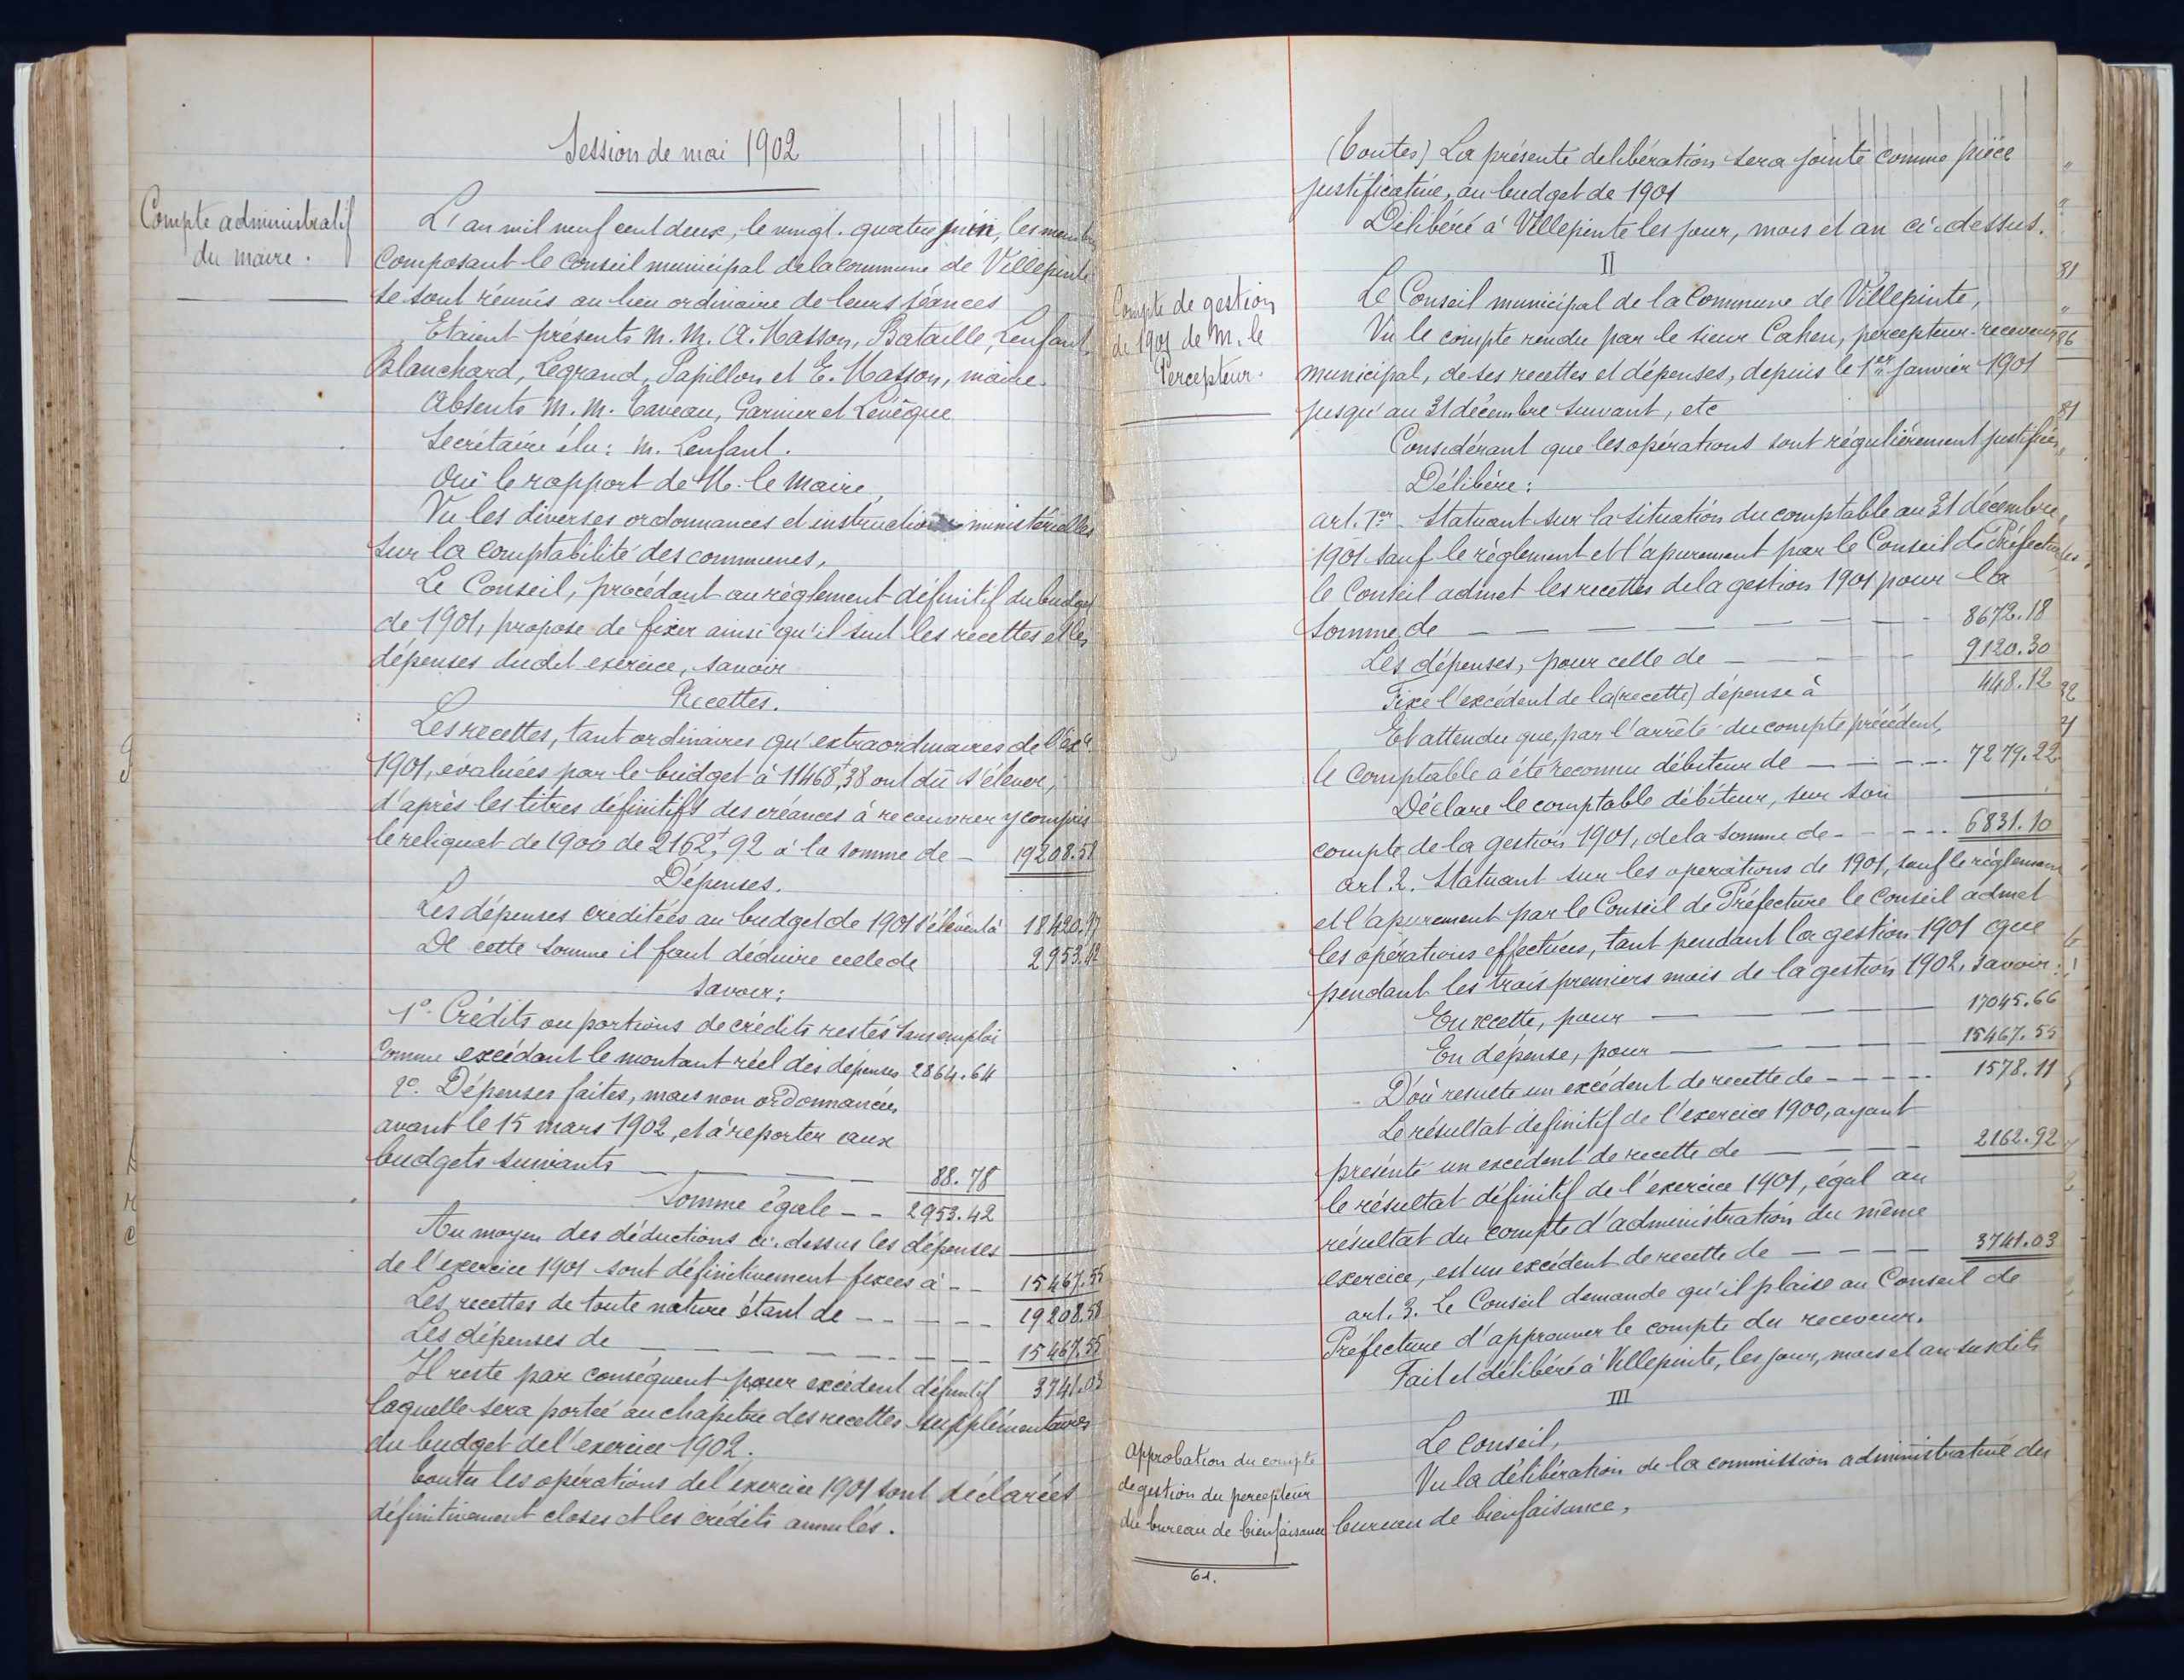 Session de mai 1902
Compte administratif
du maire.
L'an mil neuf cent deux, le vingt-quatre juin, les membres
composant le Conseil municipal de la commune de Villepinte
se sont réunis au lieu ordinaire de leurs séances
Etaient présents M. M. A. Masson, Bataille, Lenfant,
Blanchard, Legrand, Papillon et E. Masson, maire.
Absents M. M. Taveau, Garnier et Lévêque
Secrétaire élu: M. Lenfant.
Ouï le rapport de M. le Maire,
Vu les diverses ordonnances et instructions ministérielles
sur la comptabilité des communes,
Le Conseil, procédant au règlement définitif du budget
de 1901, propose de fixer ainsi qu'il suit les recettes et les
dépenses dudit exercice, savoir
Recettes.
Les recettes, tant ordinaires qu'extraordinaires de l'exce
1901, évaluées par le budget à 11468f,38 ont dû s'élever,
d'après les titres définitifs des créances à recouvrer y compris
le reliquat de 1900 de 2162f,92 à la somme de — 19208.58
Dépenses.
Les dépenses créditées au budget de 1901 s'élèvent à 18420.97
De cette somme il faut déduire celle de 2953.42
Savoir:
1° Crédits ou portions de crédits restés sans emploi
comme excédant le montant réel des dépenses 2864.64
2° Dépenses faites, mais non ordonnancées
avant le 15 mars 1902, et à reporter aux
budgets suivants — — — — 88.78
Somme égale — — 2953.42
Au moyen des déductions ci-dessus les dépenses
de l'exercice 1901 sont définitivement fixées à — — 15467.55
Les recettes de toute nature étant de — — — — 19208.58
Les dépenses de — — — — — — — 15467.55
Il reste par conséquent pour excédent définitif 3741.03
laquelle sera portée au chapitre des recettes supplémentaires
du budget de l'exercice 1902.
Toutes les opérations de l'exercice 1901 sont déclarées
définitivement closes et les crédits annulés.
(Toutes) La présente delibération sera jointe comme pièce
justificative, au budget de 1901
Délibéré à Villepinte les jour, mois et an ci-dessus.
II
Compte de gestion
de 1901 de M. le
Percepteur.
Le Conseil municipal de la Commune de Villepinte,
Vu le compte rendu par le sieur Cahen, percepteur-receveur
municipal, de ses recettes et dépenses, depuis le 1er janvier 1901
jusqu'au 31 décembre suivant, etc
Considérant que les opérations sont régulièrement justifiées,
Délibère:
art. 1er — Statuant sur la situation du comptable au 31 décembre
1901 sauf le règlement et l'apurement par le Conseil de Préfecture,
le Conseil admet les recettes de la gestion 1901 pour la
somme de — — — — — — — 8672.18
Les dépenses, pour celle de — — — — 9120.30
Fixe l'excédent de la (recette) dépense à 448.12
Et attendu que, par l'arrêté du compte précédent,
le comptable a été reconnu débiteur de — — — — 7279.22
Déclare le comptable débiteur, sur son
compte de la gestion 1901, de la somme de — — — — 6831.10
art. 2. Statuant sur les opérations de 1901, sauf le règlement
et l'apurement par le Conseil de Préfecture le Conseil admet
les opérations effectuées, tant pendant la gestion 1901 que
pendant les trois premiers mois de la gestion 1902, savoir:
En recette, pour — — — — — 17045.66
En dépense, pour — — — — — 15467.55
D'où résulte un excédent de recette de — — — — — 1578.11
Le résultat définitif de l'exercice 1900, ayant
présenté un excédent de recette de — — — — 2162.92
le résultat définitif de l'exercice 1901, égal au
résultat du compte d'administration du même
exercice, est un excédent de recette de — — — — 3741.03
art. 3. Le Conseil demande qu'il plaise au Conseil de
Préfecture d'approuver le compte du receveur.
Fait et délibéré à Villepinte, les jour, mois et an susdits
III
Approbation du compte
de gestion du percepteur
du bureau de bienfaisance
Le conseil,
Vu la délibération de la commission administrative du
bureau de bienfaisance,
61.